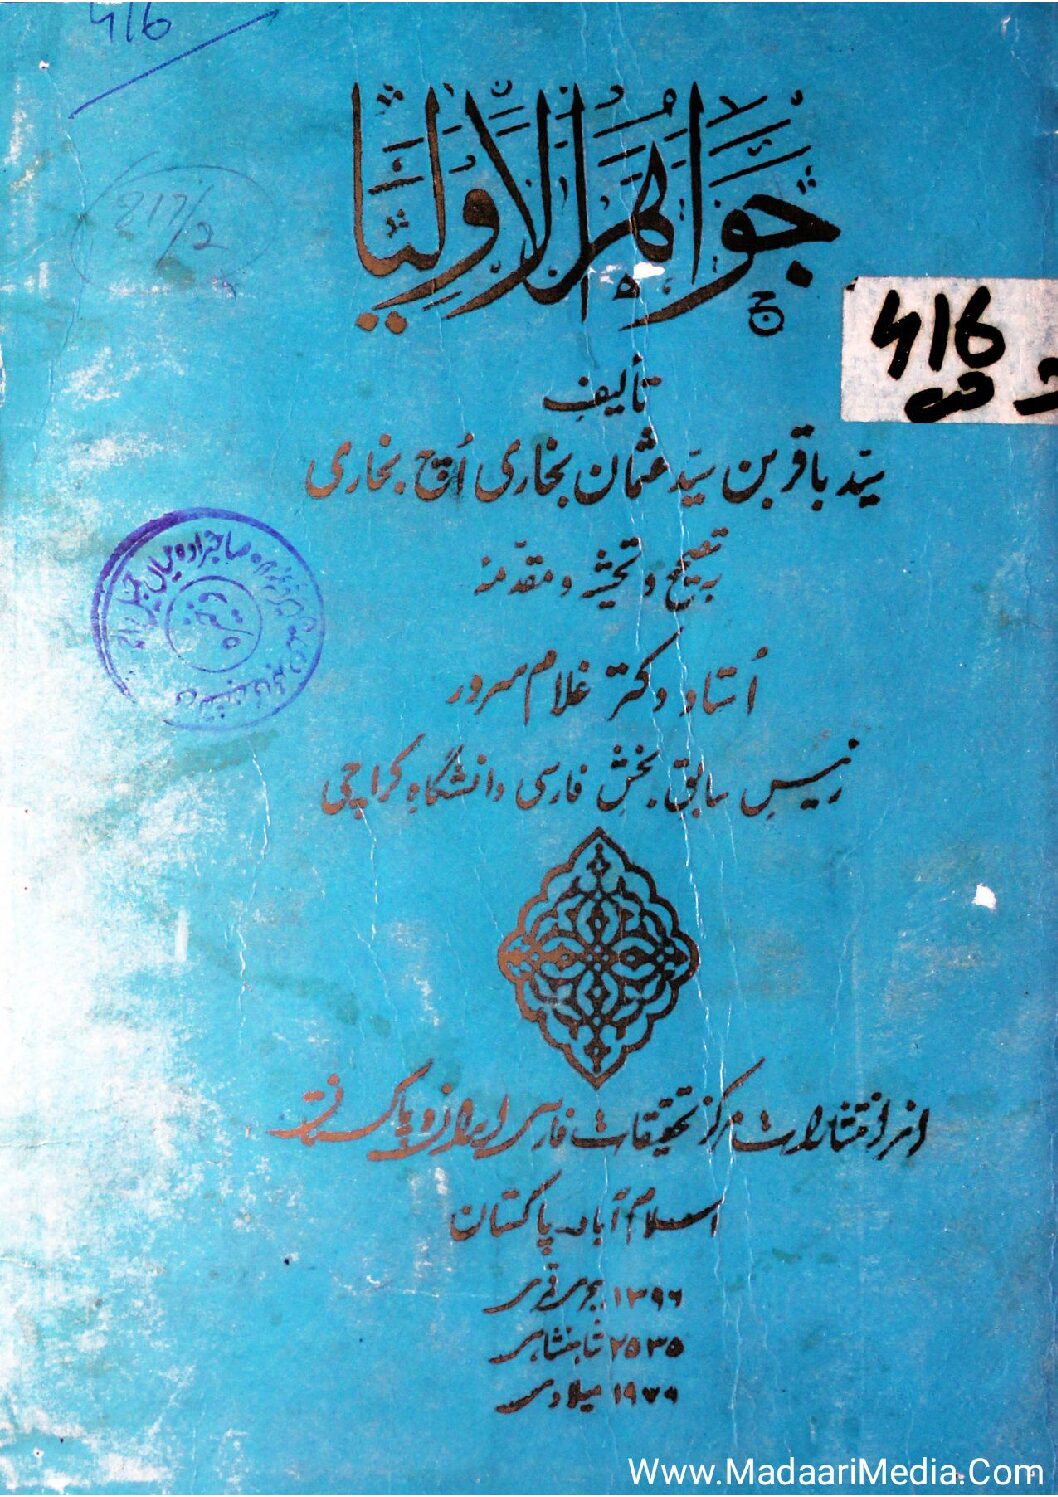 416
217/2
جَوَاهِرُ الْاَوْلِیَا
416
تألیفِ
سیّد باقر بن سیّد عثمان بخاری اُچ بخاری
به تصحیح و تحشیه و مقدّمه
اُستاد دکتر غلام سرور
رئیسِ سابق بخشِ فارسی دانشگاهِ کراچی
از انتشارات مرکز تحقیقات فارسی ایران و پاکستان
اسلام آباد پاکستان
۱۳۹۶ هجری قمری
۲۵۳۵ شاهنشاهی
۱۹۷۶ میلادی
Www.MadaariMedia.Com